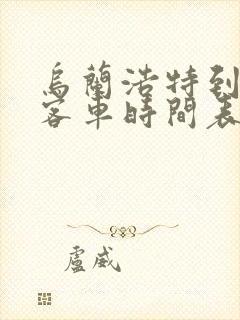 烏蘭浩特到
客車時間表
盧威